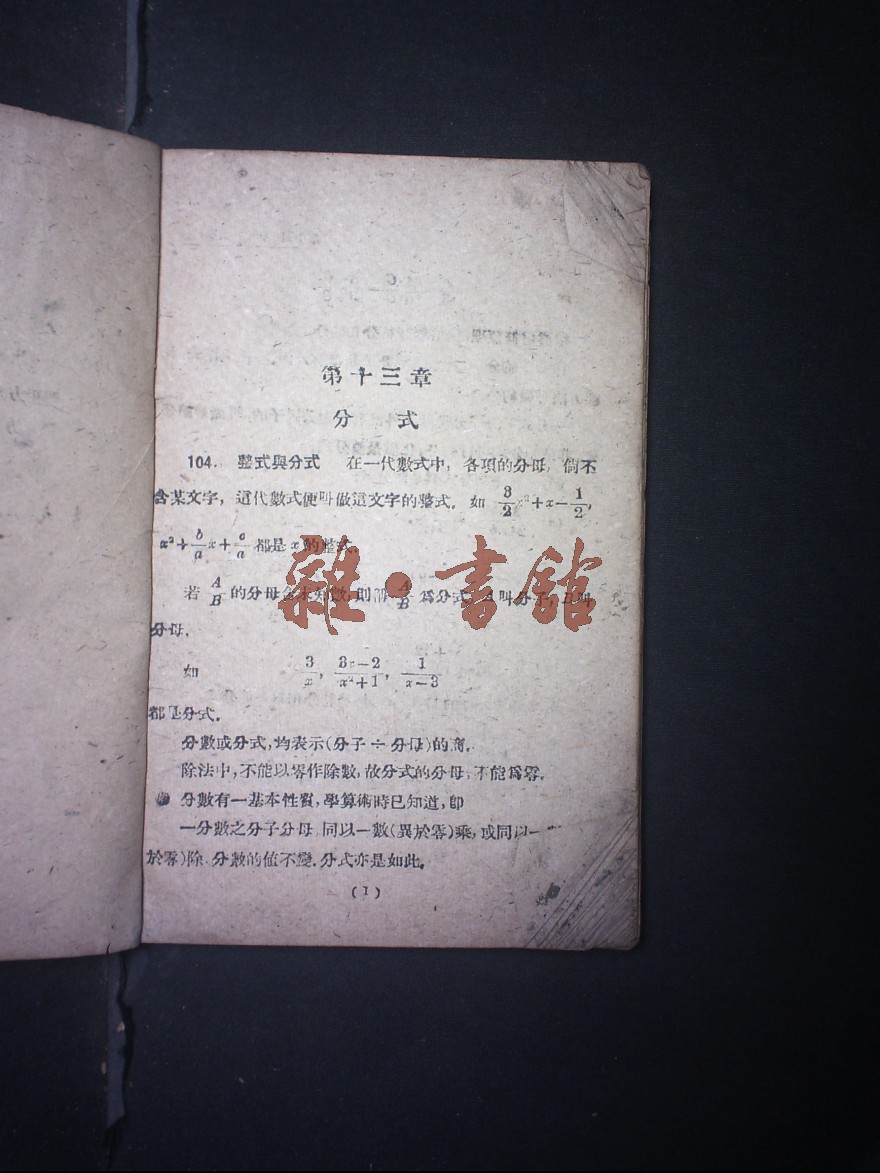 第十三章
分 式
104. 整式與分式 在一代數式中，各項的分母，倘不
含某文字，這代數式便叫做這文字的整式．如 3/2 x²+x−1/2,
x²+b/a x+c/a 都是 x 的整式．
若 A/B 的分母含未知數，則 A/B 爲分式，A叫分子，B叫
分母．
如 3/x, 3x−2/x²+1, 1/x−3
都是分式．
分數或分式，均表示(分子÷分母)的商．
除法中，不能以零作除數，故分式的分母，不能爲零．
分數有一基本性質，學算術時已知道，卽
一分數之分子分母，同以一數(異於零)乘，或同以一
於零)除，分數的値不變．分式亦是如此．
(1)
雜·書館